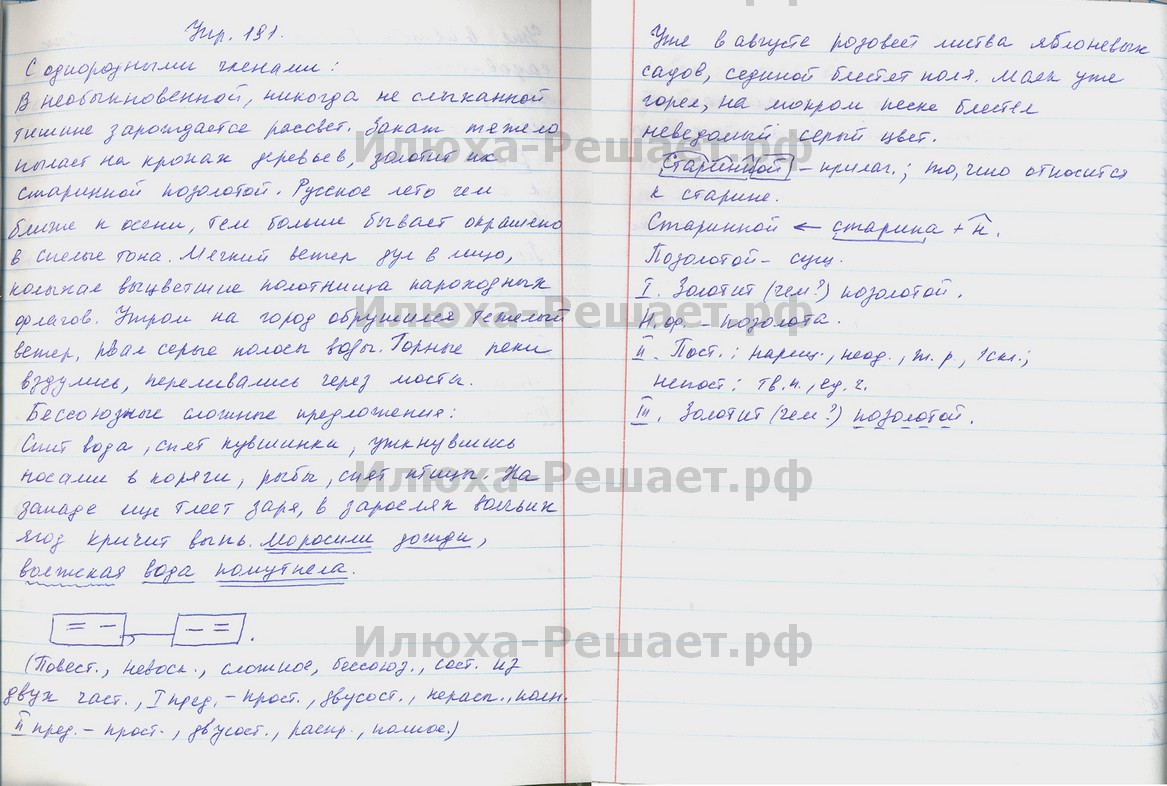 Упр. 191.
С однородными членами:
В необыкновенной, никогда не слыханной
тишине зарождается рассвет. Закат тяжело
пылает на кронах деревьев, золотит их
старинной позолотой. Русское лето чем
ближе к осени, тем больше бывает окрашено
в спелые тона. Мягкий ветер дул в лицо,
колыхая выцветшие полотнища пароходных
флагов. Утром на город обрушился тяжелый
ветер, рвал серые полосы воды. Горные реки
вздулись, переливались через мосты.
Бессоюзные сложные предложения:
Спит вода, спят кувшинки, уткнувшись
носами в коряги, рыбы, спят птицы. На
западе еще тлеет заря, в зарослях волчьих
ягод кричит выпь. Моросили дожди,
волжская вода помутнела.
(Повест., невоск., сложное, бессоюз., сост. из
двух част., I пред. – прост., двусост., нерасп., полн.
II пред. – прост., двусост., распр., полное.)
Уже в августе розовеет листва яблоневых
садов, сединой блестят поля. Маяк уже
горел, на мокром песке блестел
неведомый серый цвет.
Старинной – прилаг.; то, что относится
к старине.
Старинной ← старина + н.
Позолотой – сущ.
I. Золотит (чем?) позолотой.
Н. ф. – позолота.
II. Пост.: нариц., неод., ж. р., 1 скл.;
непост: тв. п., ед. ч.
III. Золотит (чем?) позолотой.
Илюха-Решает.рф
Илюха-Решает.рф
Илюха-Решает.рф
Илюха-Решает.рф
Илюха-Решает.рф